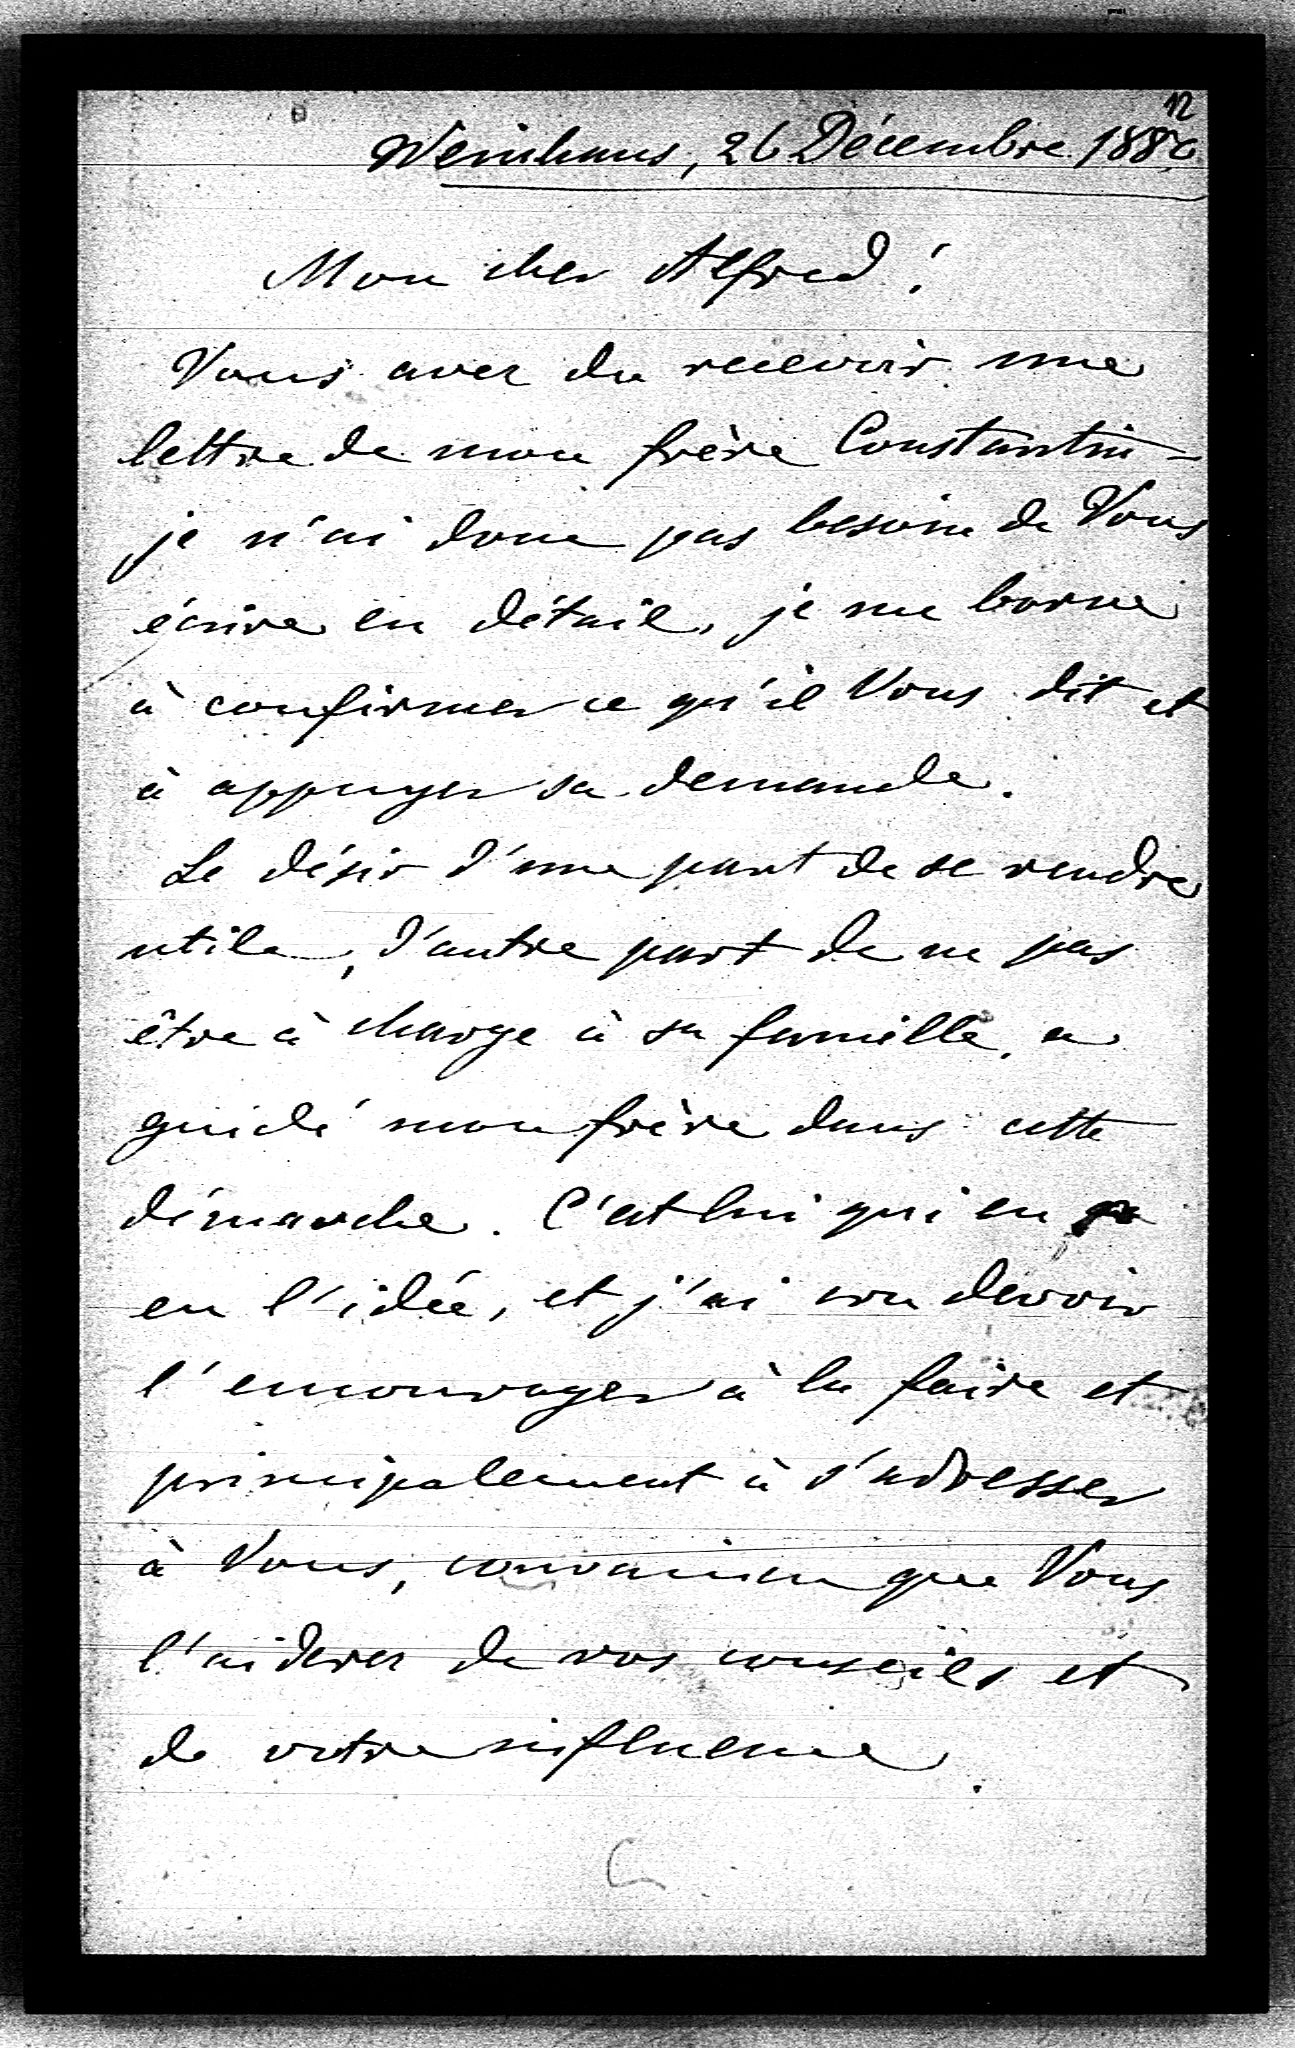 12
Weinhaus, 26 Décembre 1880
Mon cher Alfred!
Vous avez du recevoir une
lettre de mon frère Constantin –
je n'ai donc pas besoin de Vous
écrire en détail, je me borne
à confirmer ce qu'il Vous dit et
à appuyer sa demande.
Le désir d'une part de se rendre
utile, d'autre part de ne pas
être à charge à sa famille, a
guidé mon frère dans cette
démarche. C'est lui qui en a
eu l'idée, et j'ai cru devoir
l'encourager à la faire et
principalement à s'adresser
à Vous, convaincu que Vous
l'aiderez de vos conseils et
de votre influence.